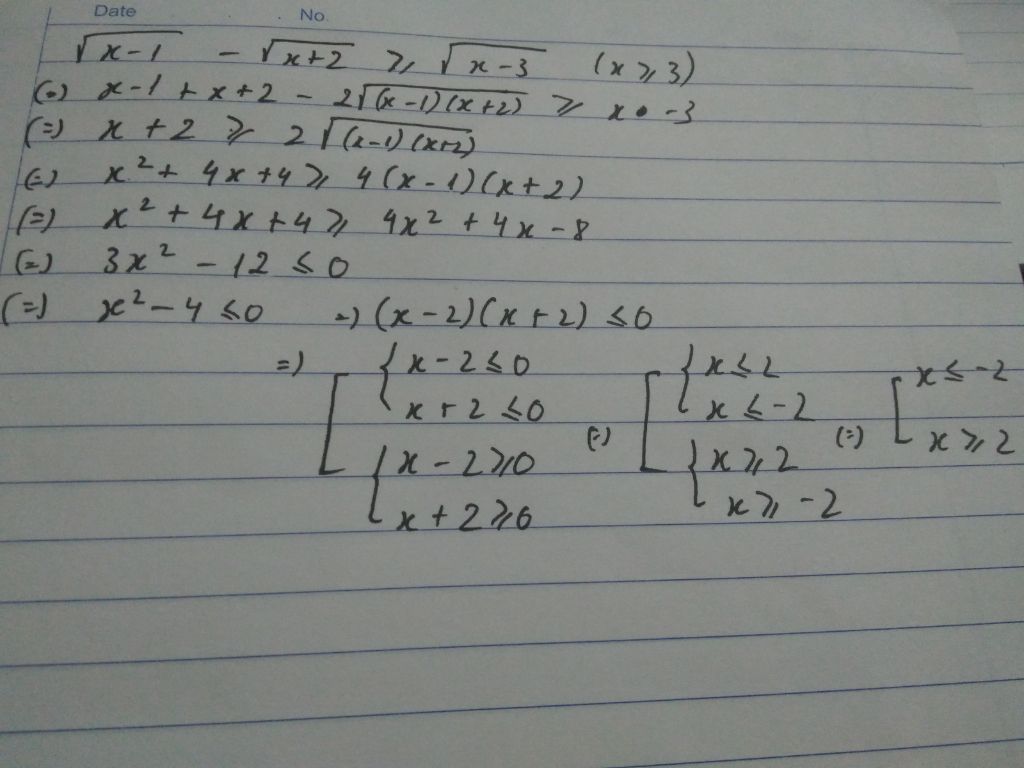 Date No
√(x-1) - √(x+2) ≥ √(x-3) (x ≥ 3)
(=) x-1 + x+2 - 2√((x-1)(x+2)) ≥ x -3
(=) x + 2 ≥ 2√((x-1)(x+2))
(=) x² + 4x + 4 ≥ 4(x-1)(x+2)
(=) x² + 4x + 4 ≥ 4x² + 4x - 8
(=) 3x² - 12 ≤ 0
(=) x² - 4 ≤ 0 =) (x-2)(x+2) ≤ 0
=) [ { x-2 ≤ 0 [ { x ≤ 2 [ x ≤ -2
x+2 ≤ 0 (=) x ≤ -2 (=) x ≥ 2
{ x-2 ≥ 0 { x ≥ 2
x+2 ≥ 0 x ≥ -2